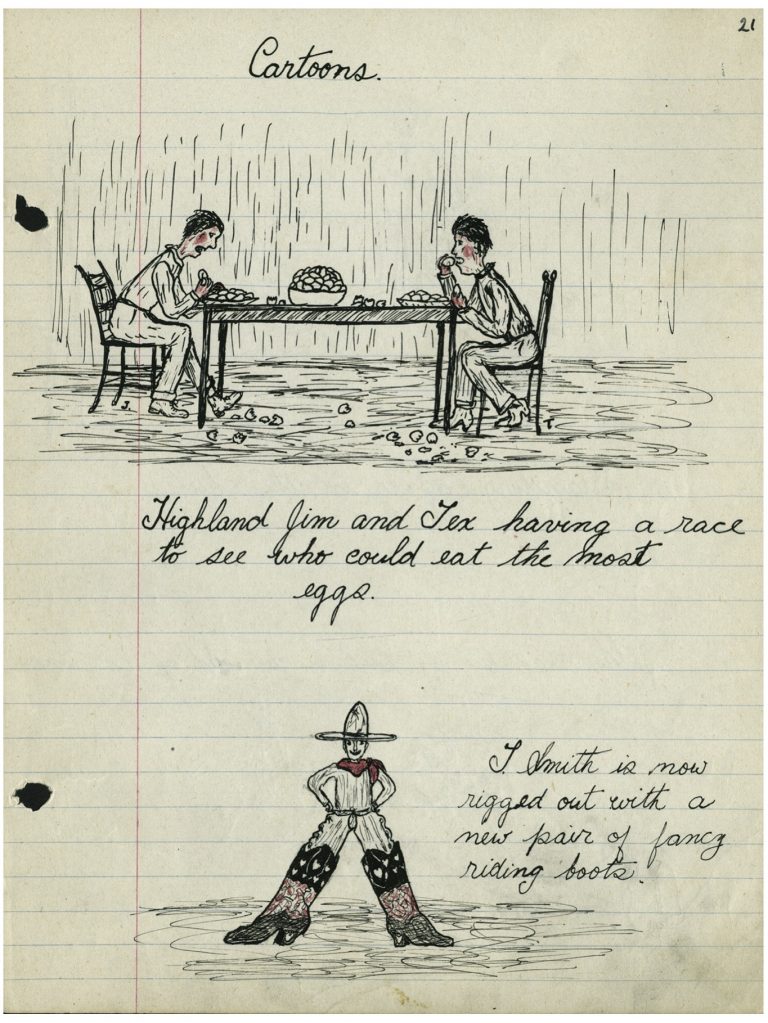 21
Cartoons.
Highland Jim and Tex having a race
to see who could eat the most
eggs.
T. Smith is now
rigged out with a
new pair of fancy
riding boots.